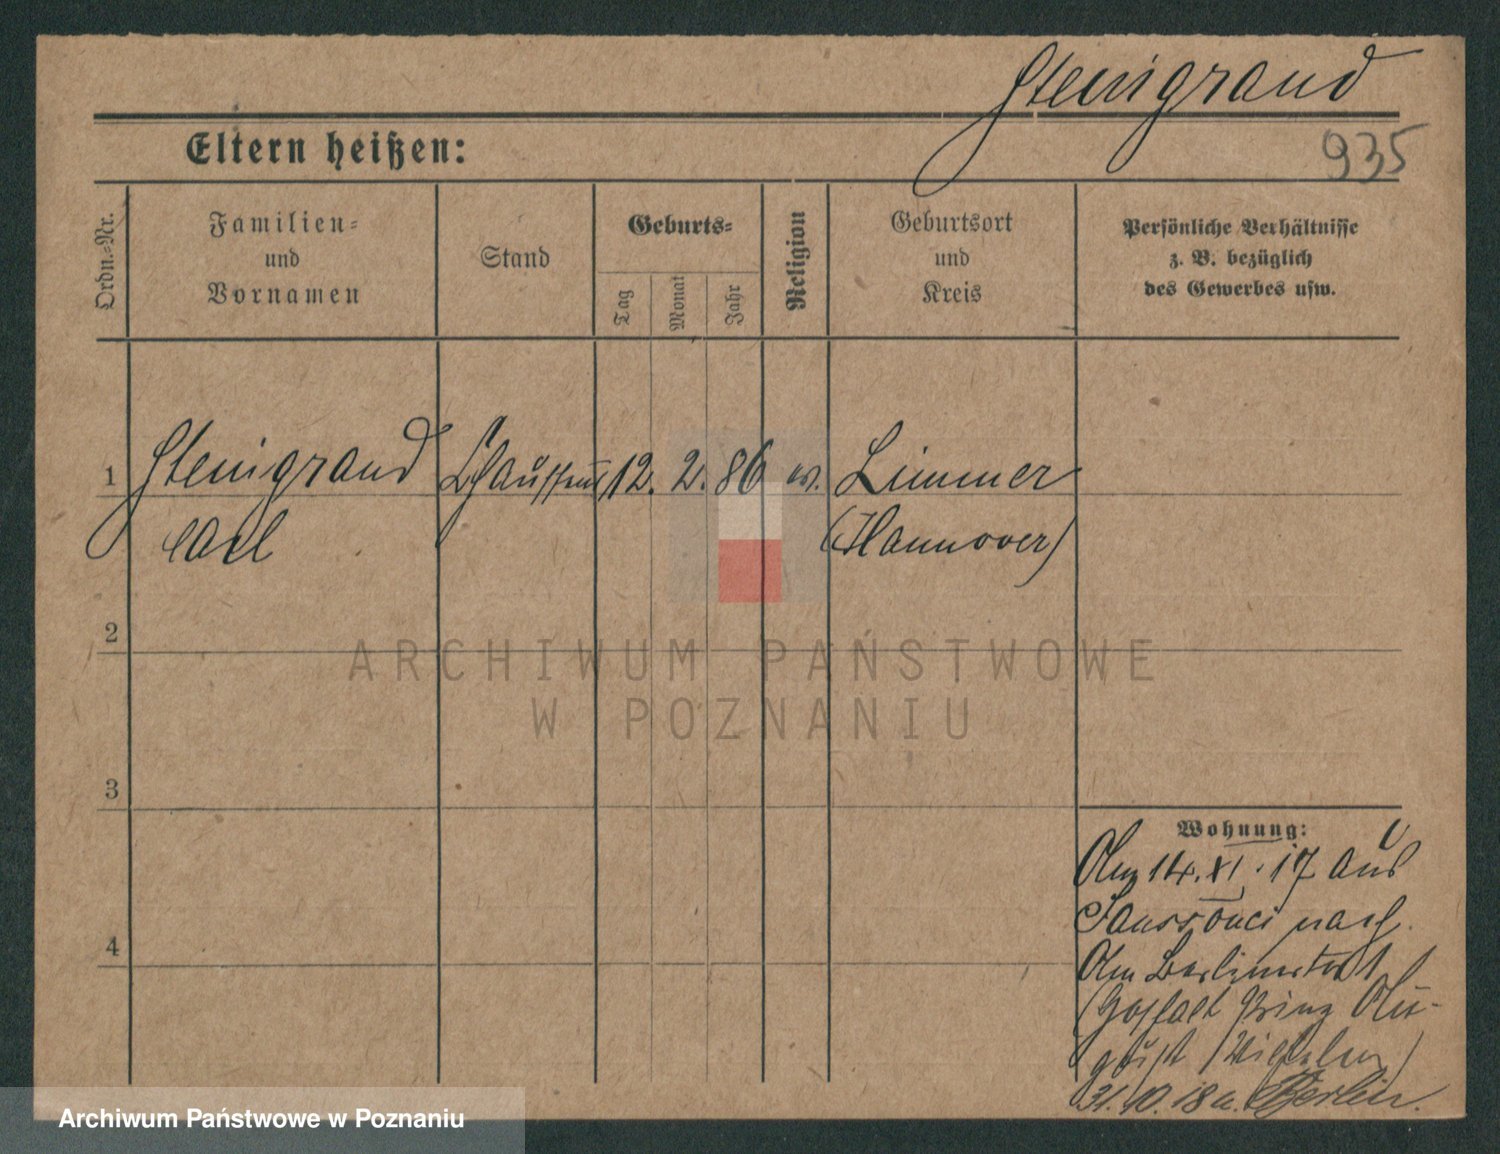 Steingrand
935
Eltern heißen:
Ordn.-Nr.
Familien-
und
Vornamen
Stand
Geburts-
Tag
Monat
Jahr
Religion
Geburtsort
und
Kreis
Persönliche Verhältnisse
z. B. bezüglich
des Gewerbes usw.
1 Steingrand Chauffeur 12. 2. 86 ev. Limmer
Carl (Hannover)
2
ARCHIWUM PAŃSTWOWE
W POZNANIU
3
4
Wohnung:
Am 14. XI. 17 aus
Sanssouci nach
Am Berlinertor 1
(Gasthaus Prinz Au-
gust
31.10.18 a. Berlin.
Archiwum Państwowe w Poznaniu